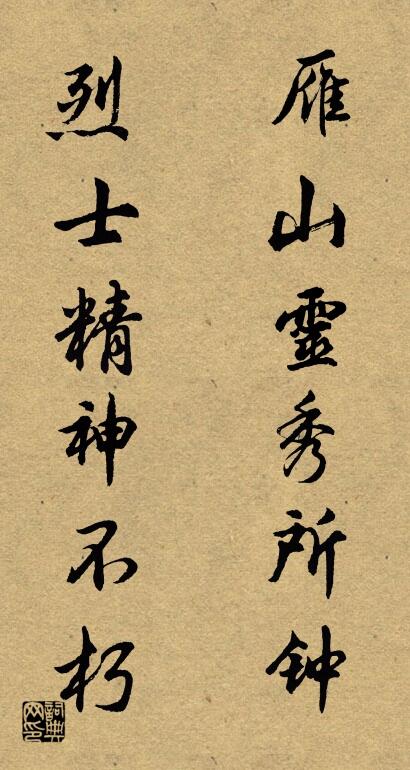 雁山靈秀所钟
烈士精神不朽
詞典网印